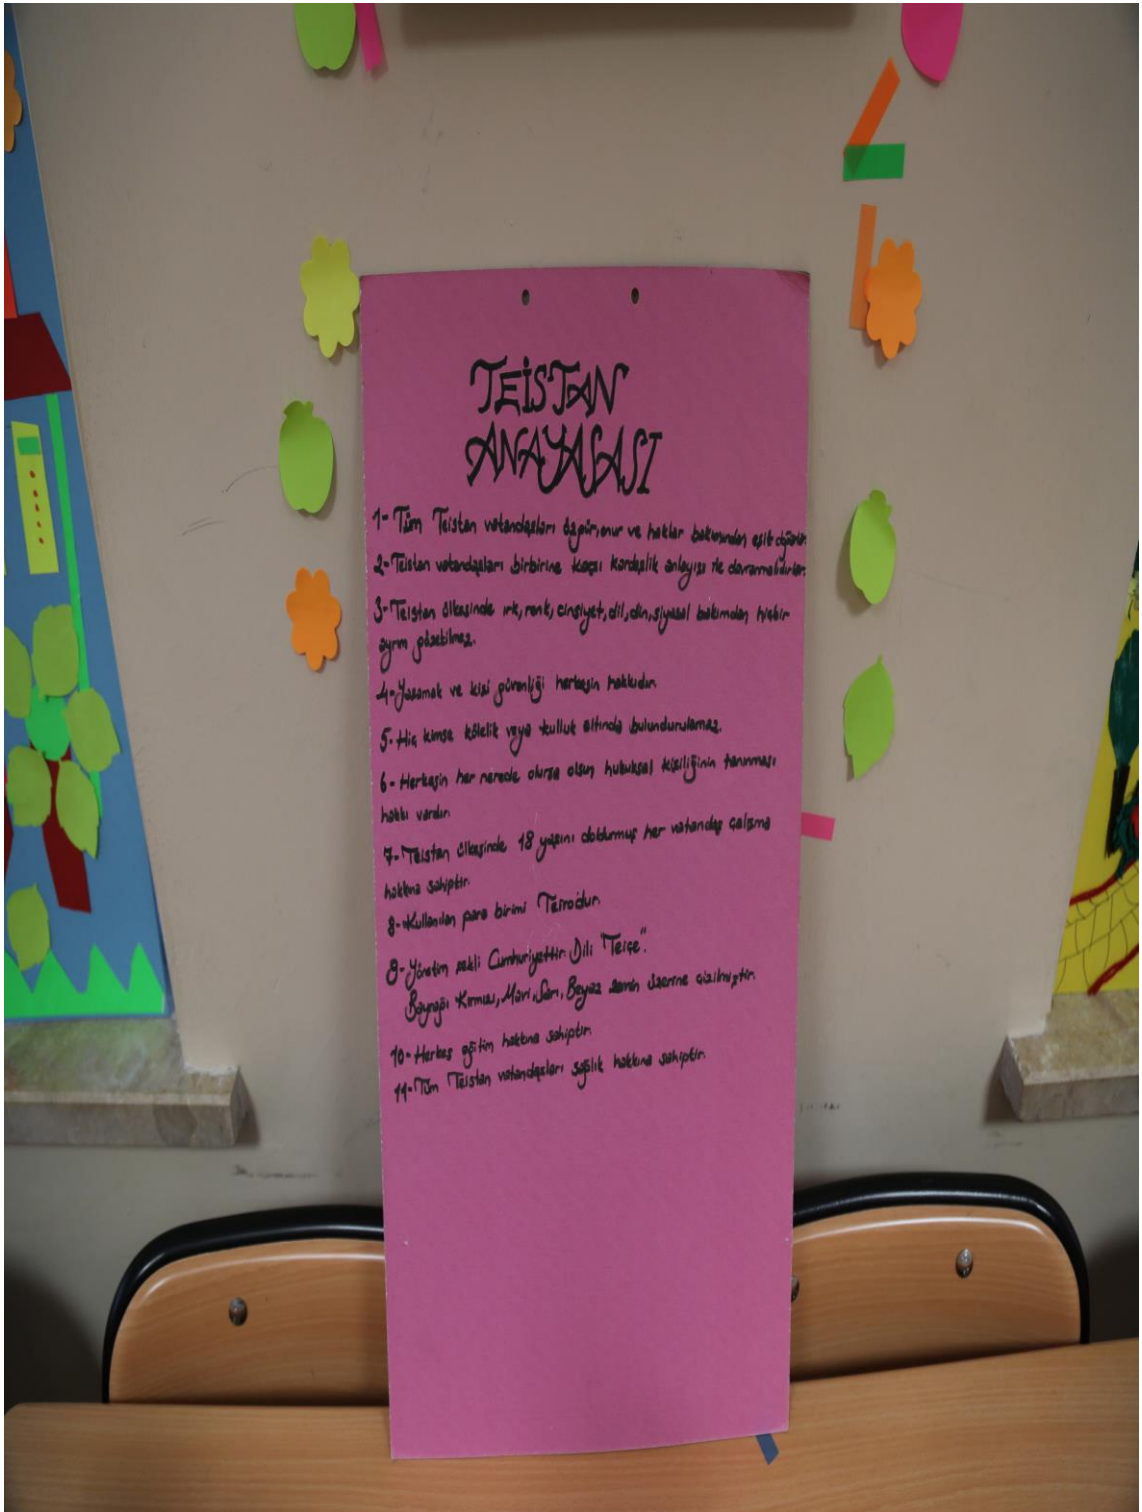 TEİSTAN
ANAYASASI
1- Tüm Teistan vatandaşları özgür, onur ve haklar bakımından eşit doğarlar.
2- Teistan vatandaşları birbirine karşı kardeşlik anlayışı ile davranmalıdırlar.
3- Teistan ülkesinde ırk, renk, cinsiyet, dil, din, siyasal bakımdan hiçbir
ayrım gözetilmez.
4- Yaşamak ve kişi güvenliği herkesin hakkıdır.
5- Hiç kimse kölelik veya kulluk altında bulundurulamaz.
6- Herkesin her nerede olursa olsun hukuksal kişiliğinin tanınması
hakkı vardır.
7- Teistan ülkesinde 18 yaşını doldurmuş her vatandaş çalışma
hakkına sahiptir.
8- Kullanılan para birimi
9- Yönetim şekli Cumhuriyettir. Dili "Teice".
Bayrağı Kırmızı, Mavi, Sarı, Beyaz zemin üzerine çizilmiştir.
10- Herkes eğitim hakkına sahiptir.
11- Tüm Teistan vatandaşları sağlık hakkına sahiptir.